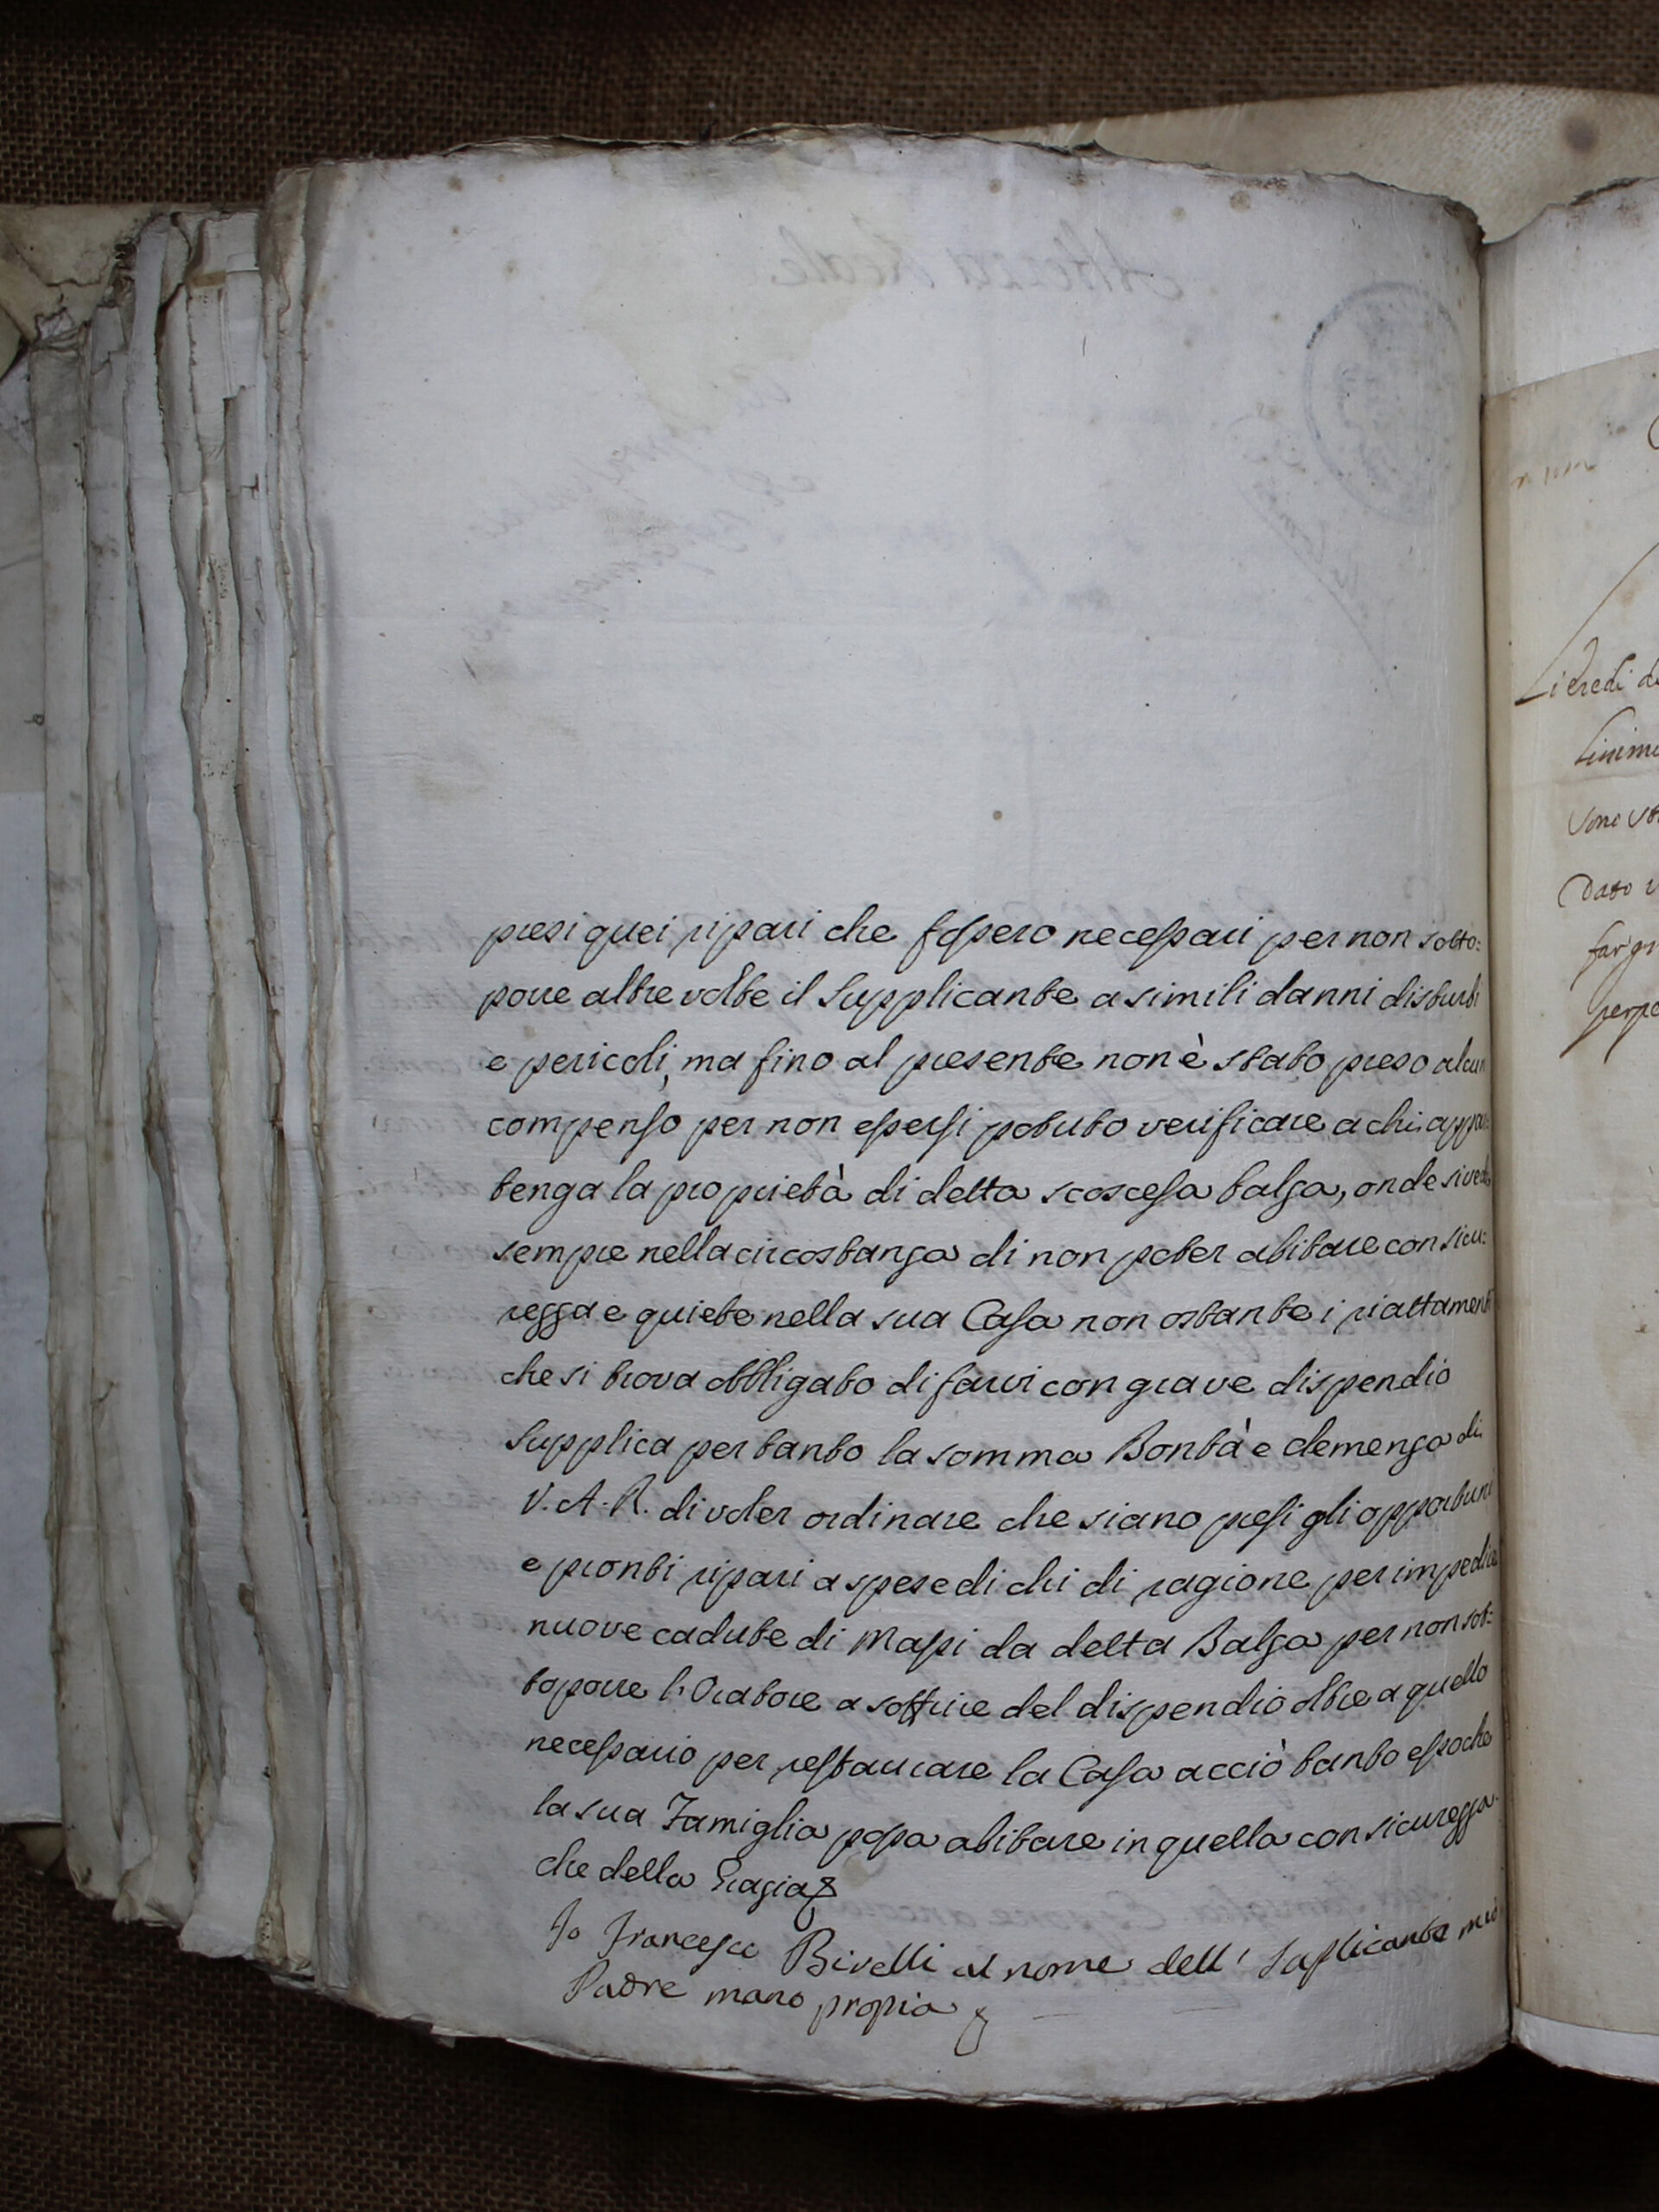 presi quei ripari che fossero necessari per non sotto:
porre altre volte il Supplicante a simili danni disturbi
e pericoli, ma fino al presente non è stato preso alcun
compenso per non essersi potuto verificare a chi appar:
tenga la proprietà di detta scoscesa balza, onde si vede
sempre nella circostanza di non poter abitare con sicu:
rezza e quiete nella sua Casa non ostante i riattamenti
che si trova obbligato di farvi con grave dispendio
Supplica per tanto la somma Bontà e clemenza di
V. A. R. di voler ordinare che siano presi gli opportuni
e pronti ripari a spese di chi di ragione per impedire
nuove cadute di Massi da detta Balza per non sot:
toporre l'Oratore a soffrire del dispendio oltre a quello
necessario per restaurare la Casa acciò tanto esso che
la sua Famiglia possa abitare in quella con sicurezza.
che della Grazia
Io Francesco Bivelli al nome dell' Suplicante mio
Padre mano propia
Li eredi
sono
Dato
far